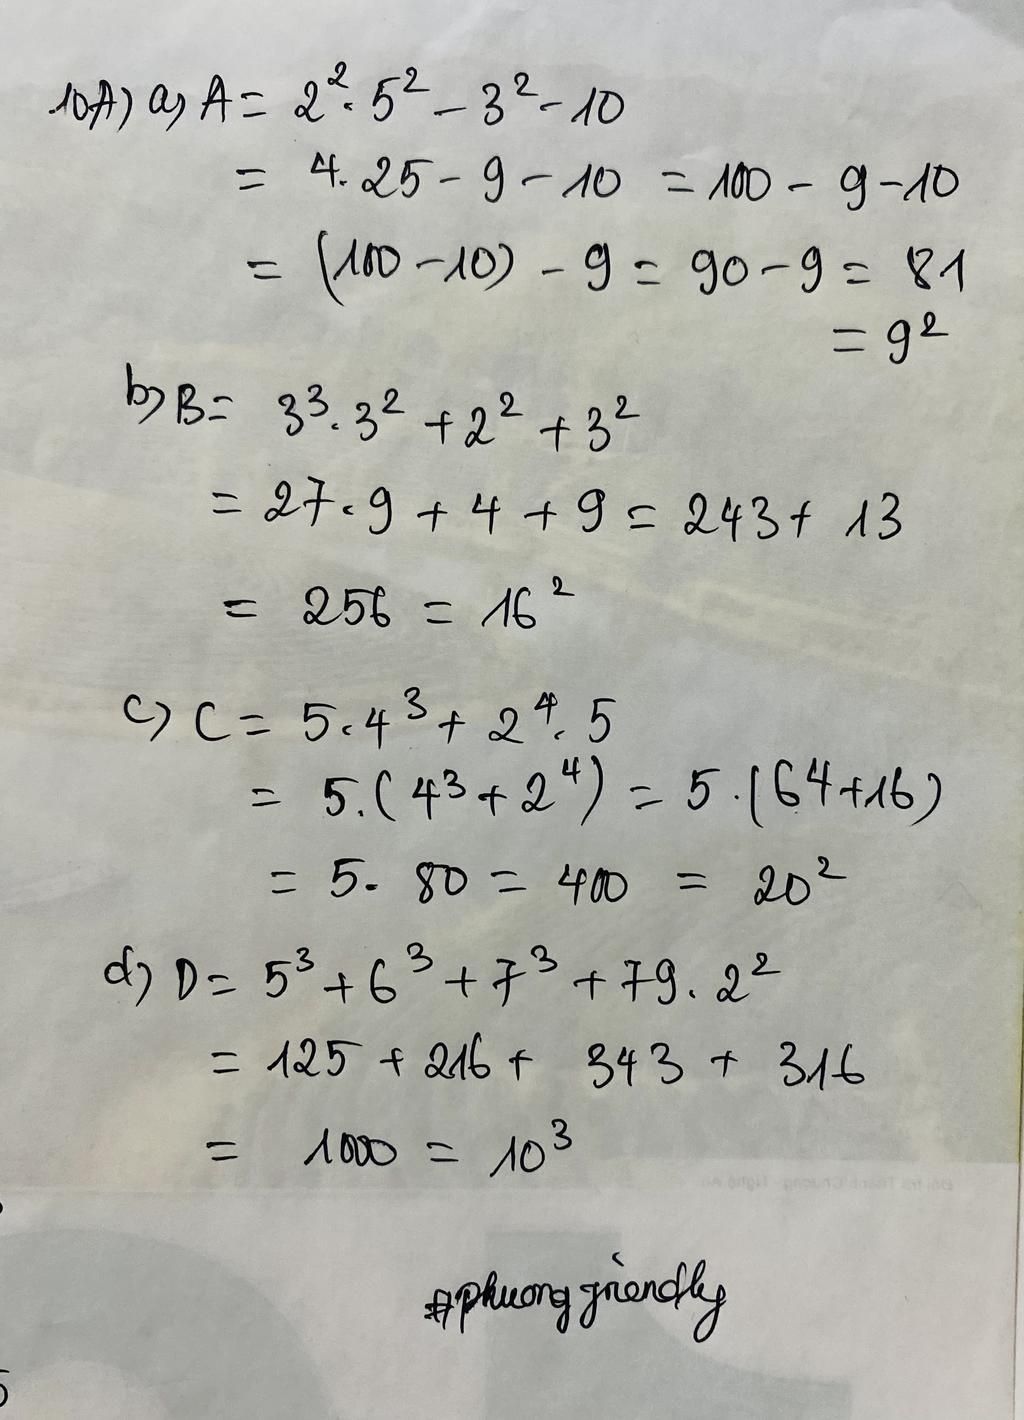 10A) a) A = 2².5² - 3² - 10
= 4.25 - 9 - 10 = 100 - 9 - 10
= (100 - 10) - 9 = 90 - 9 = 81
= 9²
b) B = 3³.3² + 2² + 3²
= 27.9 + 4 + 9 = 243 + 13
= 256 = 16²
c) C = 5.4³ + 2⁴.5
= 5.(4³ + 2⁴) = 5.(64 + 16)
= 5.80 = 400 = 20²
d) D = 5³ + 6³ + 7³ + 79.2²
= 125 + 216 + 343 + 316
= 1000 = 10³
#phuongfriendly